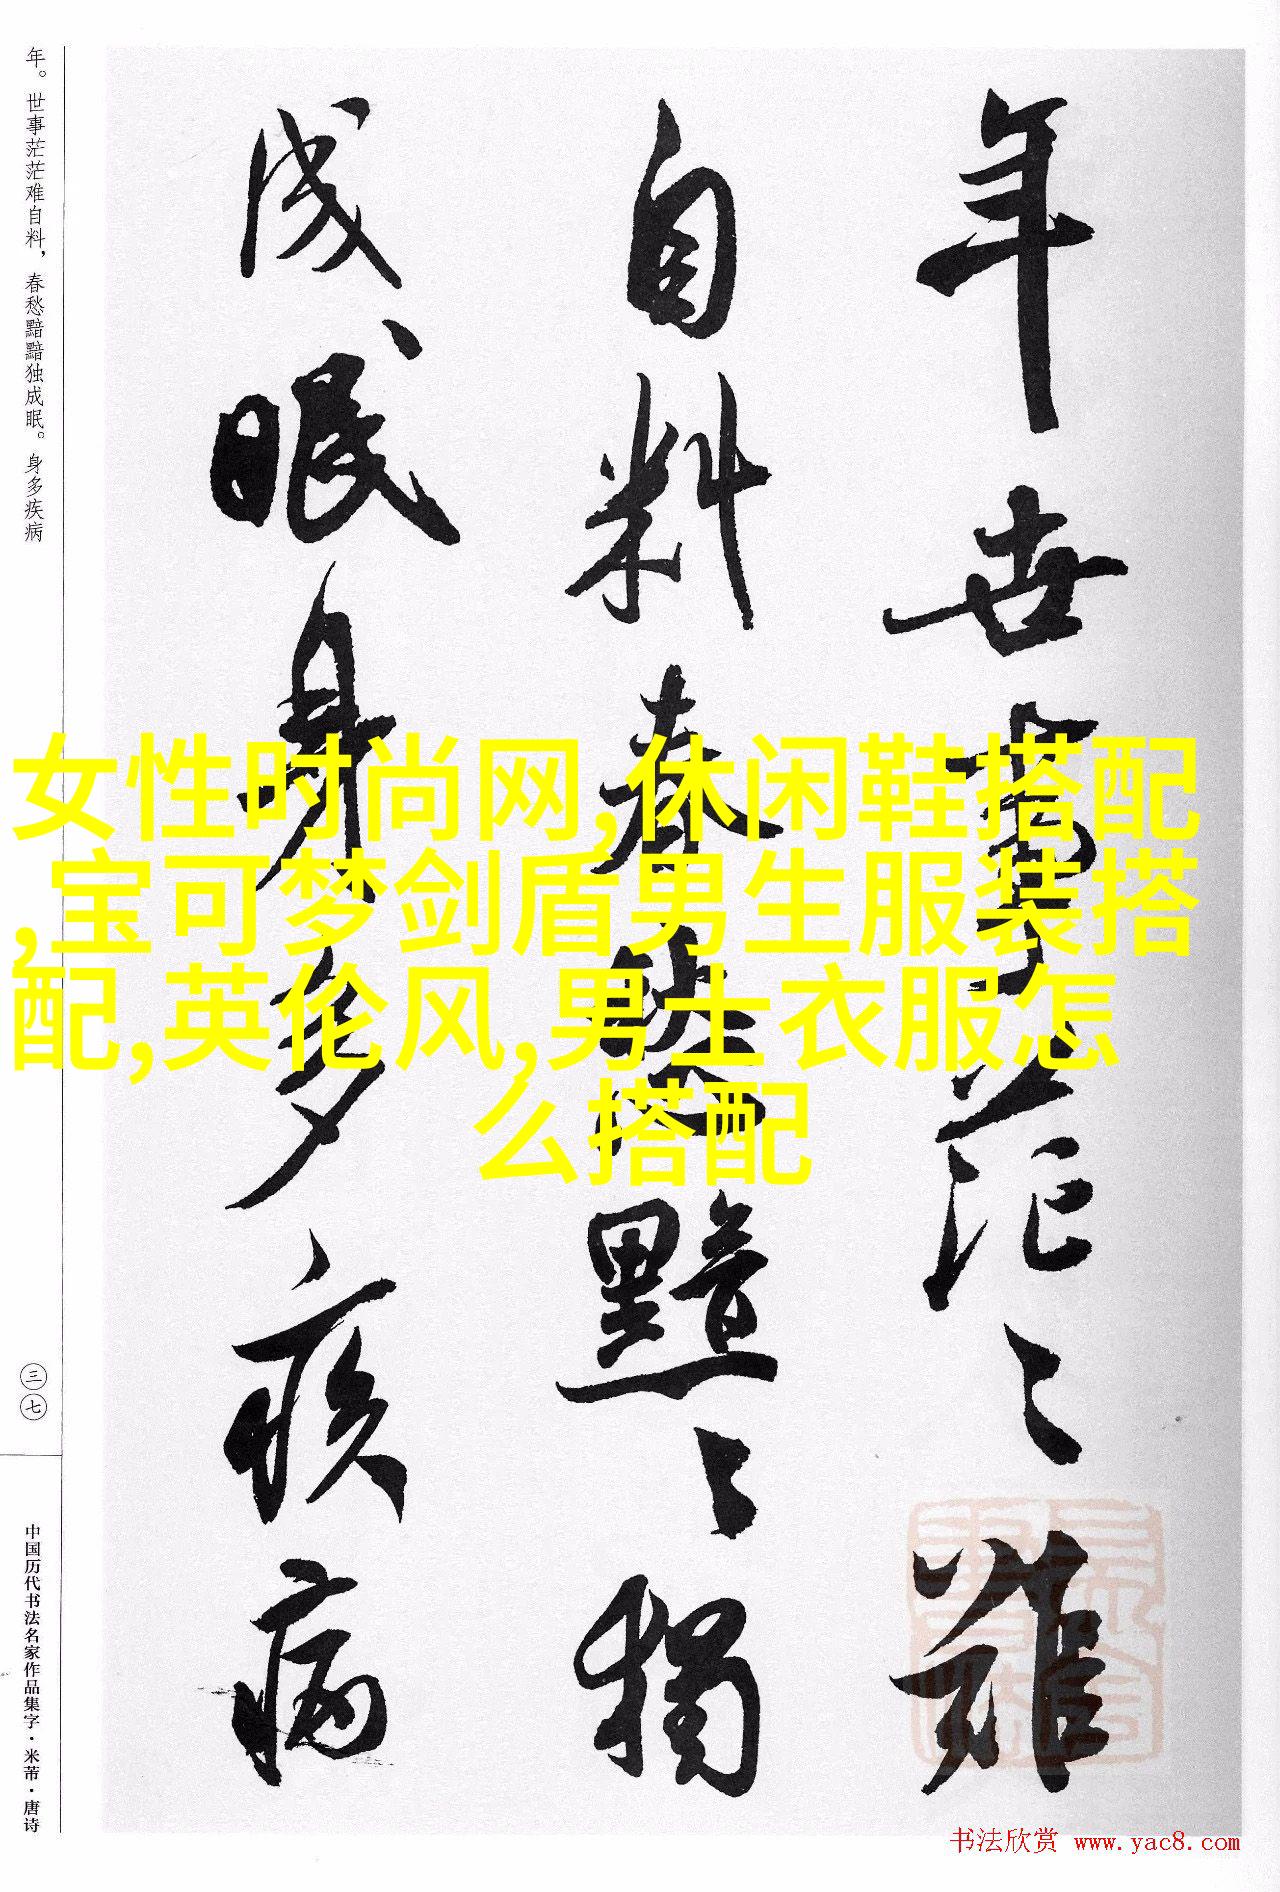 年世事茫〻難
自料春愁黯〻獨
成眠身多疾病
年。世事茫茫难自料，春愁黯黯独成眠。身多疾病
三七
中国历代书法名家作品集字·米芾·唐诗
女性时尚网,休闲鞋搭配
,宝可梦剑盾男生服装搭
配,英伦风,男士衣服怎
么搭配
书法欣赏 www.yac8.com